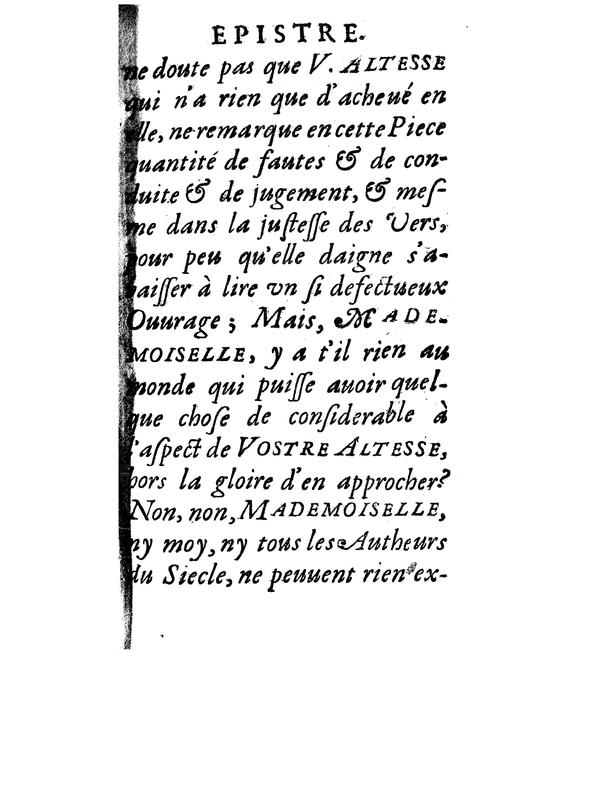 EPISTRE.
ne doute pas que V. ALTESSE
qui n'a rien que d'acheué en
elle, ne remarque en cette Piece
quantité de fautes & de con-
duite & de jugement, & meſ-
me dans la juſteſſe des Vers,
pour peu qu'elle daigne s'a-
baiſſer à lire vn ſi defectueux
Ouurage ; Mais, MADE-
MOISELLE, y a t'il rien au
monde qui puiſſe auoir quel-
que choſe de conſiderable à
l'aſpect de VOSTRE ALTESSE,
hors la gloire d'en approcher?
Non, non, MADEMOISELLE,
ny moy, ny tous les Autheurs
du Siecle, ne peuuent rien ex-